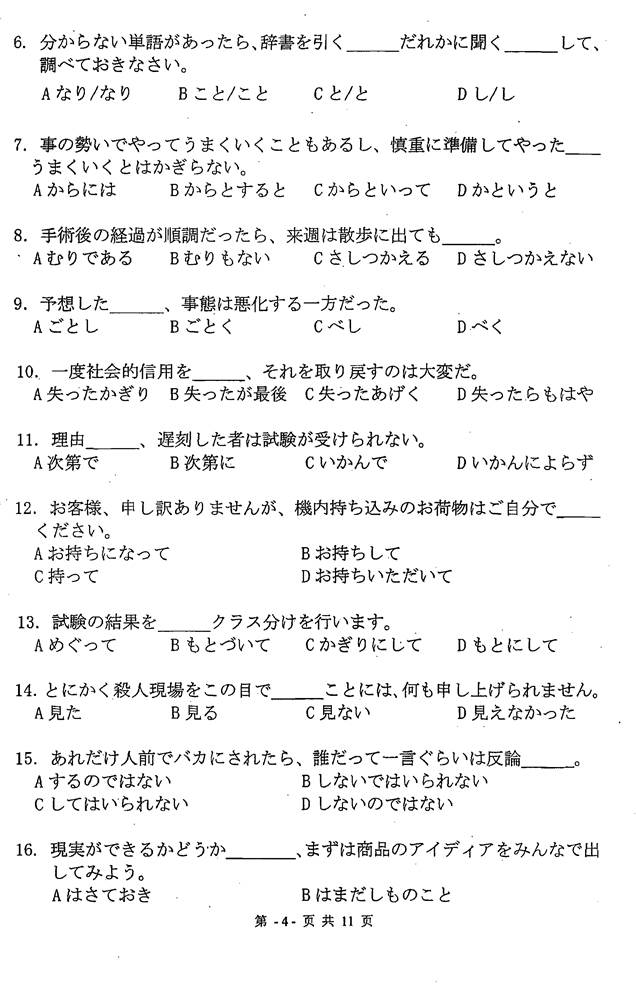 6. 分からない単語があったら、辞書を引く______だれかに聞く______して、
調べておきなさい。
A なり/なり B こと/こと C と/と D し/し
7. 事の勢いでやってうまくいくこともあるし、慎重に準備してやった____
うまくいくとはかぎらない。
A からには B からとすると C からといって D かというと
8. 手術後の経過が順調だったら、来週は散歩に出ても______。
A むりである B むりもない C さしつかえる D さしつかえない
9. 予想した______、事態は悪化する一方だった。
A ごとし B ごとく C べし D べく
10. 一度社会的信用を______、それを取り戻すのは大変だ。
A 失ったかぎり B 失ったが最後 C 失ったあげく D 失ったらもはや
11. 理由______、遅刻した者は試験が受けられない。
A 次第で B 次第に C いかんで D いかんによらず
12. お客様、申し訳ありませんが、機内持ち込みのお荷物はご自分で_____
ください。
A お持ちになって B お持ちして
C 持って D お持ちいただいて
13. 試験の結果を______クラス分けを行います。
A めぐって B もとづいて C かぎりにして D もとにして
14. とにかく殺人現場をこの目で______ことには、何も申し上げられません。
A 見た B 見る C 見ない D 見えなかった
15. あれだけ人前でバカにされたら、誰だって一言ぐらいは反論______。
A するのではない B しないではいられない
C してはいられない D しないのではない
16. 現実ができるかどうか________、まずは商品のアイディアをみんなで出
してみよう。
A はさておき B はまだしものこと
第 -4- 页 共 11 页